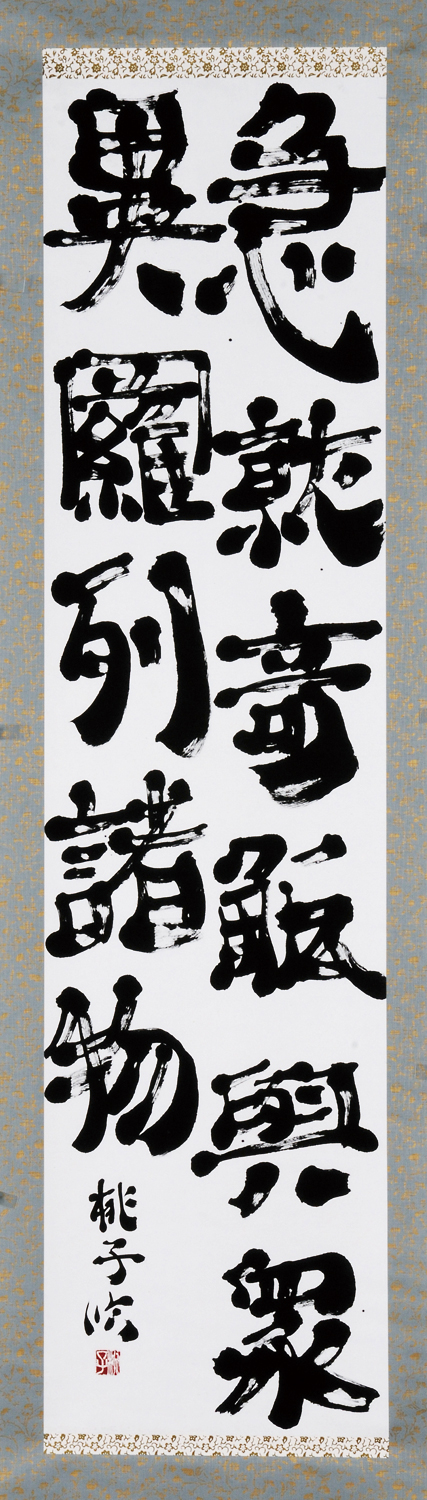 急就奇觚與眾
異羅列諸物
桃子